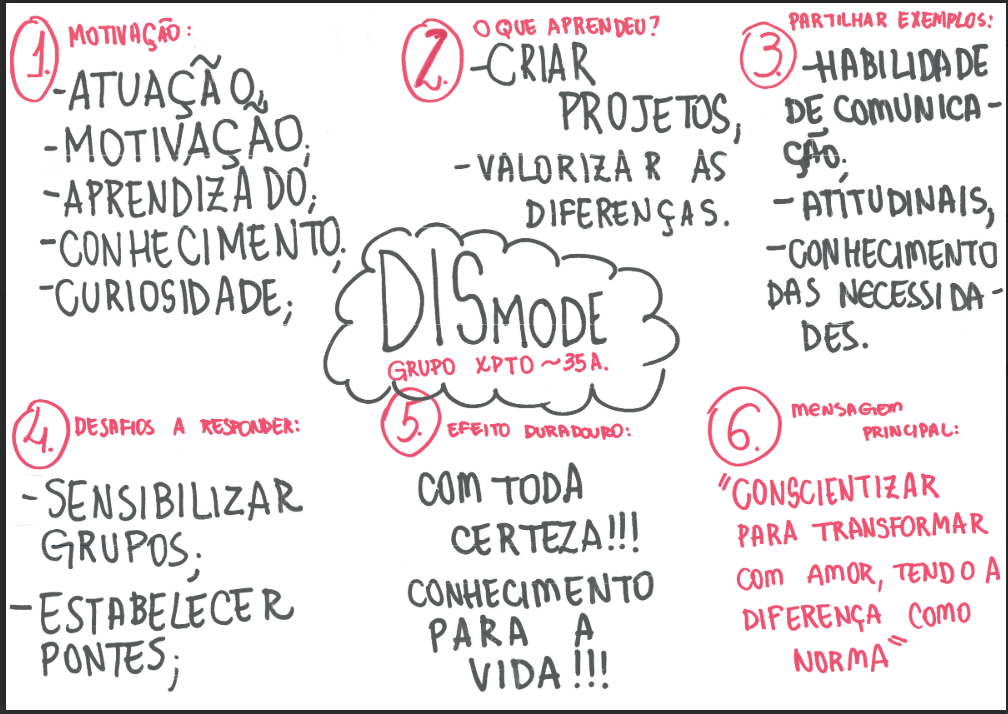 1. MOTIVAÇÃO:
-ATUAÇÃO,
-MOTIVAÇÃO;
-APRENDIZADO;
-CONHECIMENTO;
-CURIOSIDADE;
2. O QUE APRENDEU?
-CRIAR
PROJETOS;
-VALORIZAR AS
DIFERENÇAS.
3. PARTILHAR EXEMPLOS:
-HABILIDADE
DE COMUNICA-
ÇÃO;
-ATITUDINAIS,
-CONHECIMENTO
DAS NECESSIDA-
DES.
DISMODE
GRUPO XPTO ~35A.
4. DESAFIOS A RESPONDER:
-SENSIBILIZAR
GRUPOS;
-ESTABELECER
PONTES;
5. EFEITO DURADOURO:
COM TODA
CERTEZA!!!
CONHECIMENTO
PARA A
VIDA!!!
6. MENSAGEM
PRINCIPAL:
"CONSCIENTIZAR
PARA TRANSFORMAR
COM AMOR, TENDO A
DIFERENÇA COMO
NORMA"